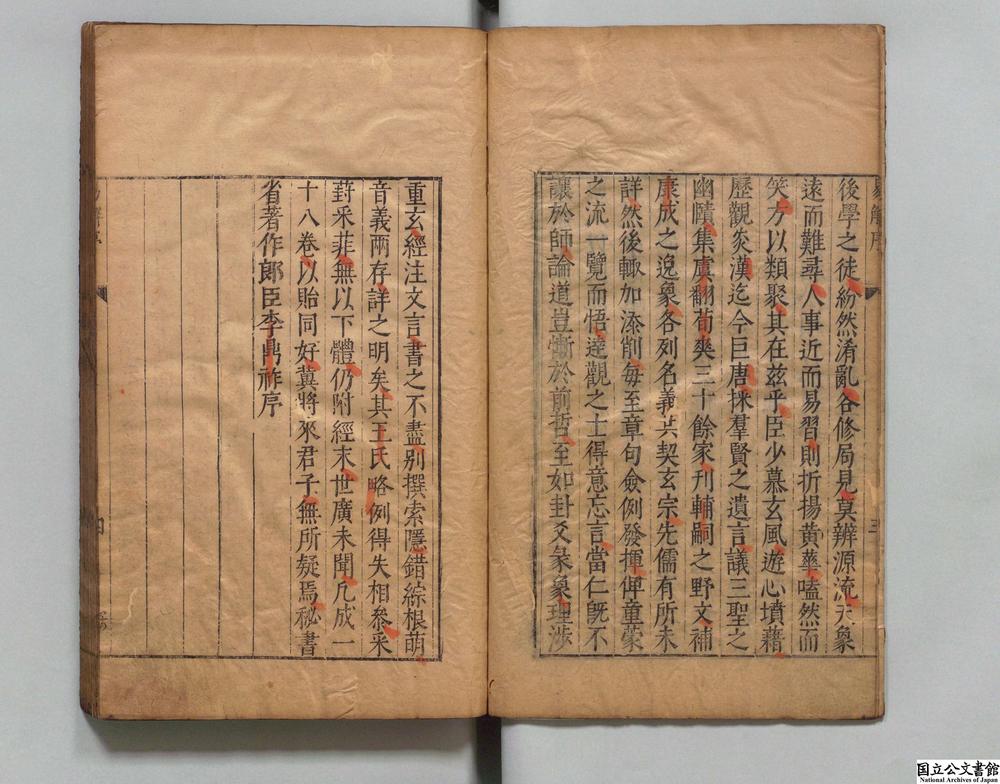 易解序
三
後學之徒紛然淆亂各修局見莫辨源流天象
遠而難尋人事近而易習則折揚黄華嗑然而
笑方以類聚其在茲乎臣少慕玄風遊心墳藉
歷觀炎漢迄今巨唐採羣賢之遺言議三聖之
幽賾集虞翻荀爽三十餘家刊輔嗣之野文補
康成之逸象各列名義共契玄宗先儒有所未
詳然後輙加添削每至章句僉例發揮俾童蒙
之流一覽而悟達觀之士得意忘言當仁既不
讓於師論道豈慚於前哲至如卦爻彖象理涉
重玄經注文言書之不盡別撰索隱錯綜根萌
音義兩存詳之明矣其王氏略例得失相參采
葑采菲無以下體仍附經末世廣未聞凢成一
十八卷以貽同好冀將來君子無所疑焉秘書
省著作郎臣李鼎祚序
四
国立公文書館
National Archives of Japan